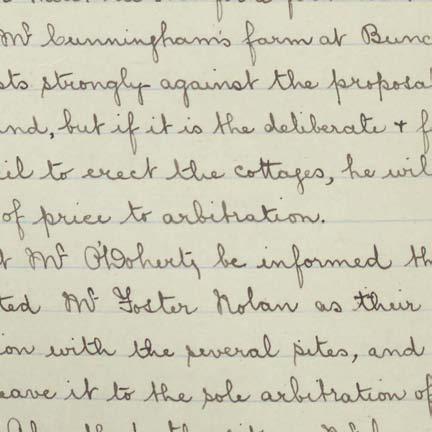 Mr Cunningham's farm at Bunc
sts strongly against the proposa
and, but if it is the deliberate + f
cil to erect the cottages, he wil
of price to arbitration.
t Mr O'Doherty be informed th
ted Mr Foster Nolan as their
ion with the several sites, and
leave it to the sole arbitration of